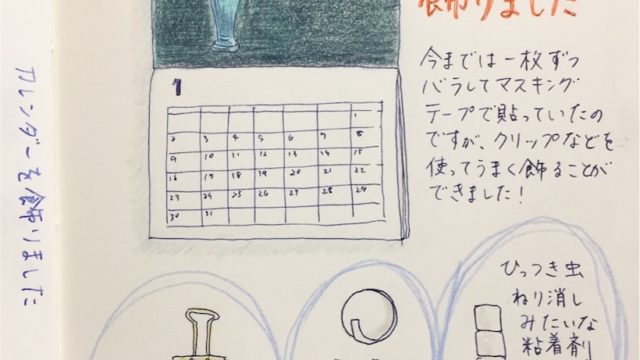 カレンダーを飾りました
飾りました
今までは一枚ずつ
バラしてマスキング
テープで貼っていたの
ですが、クリップなどを
使ってうまく飾ることが
できました！
1
1
2 3 4 5 6 7 8
9 10 11 12 13 14 15
16 17 18 19 20 21 22
23 24 25 26 27 28 29
30 31
ひっつき虫
ねり消し
みたいな
粘着剤